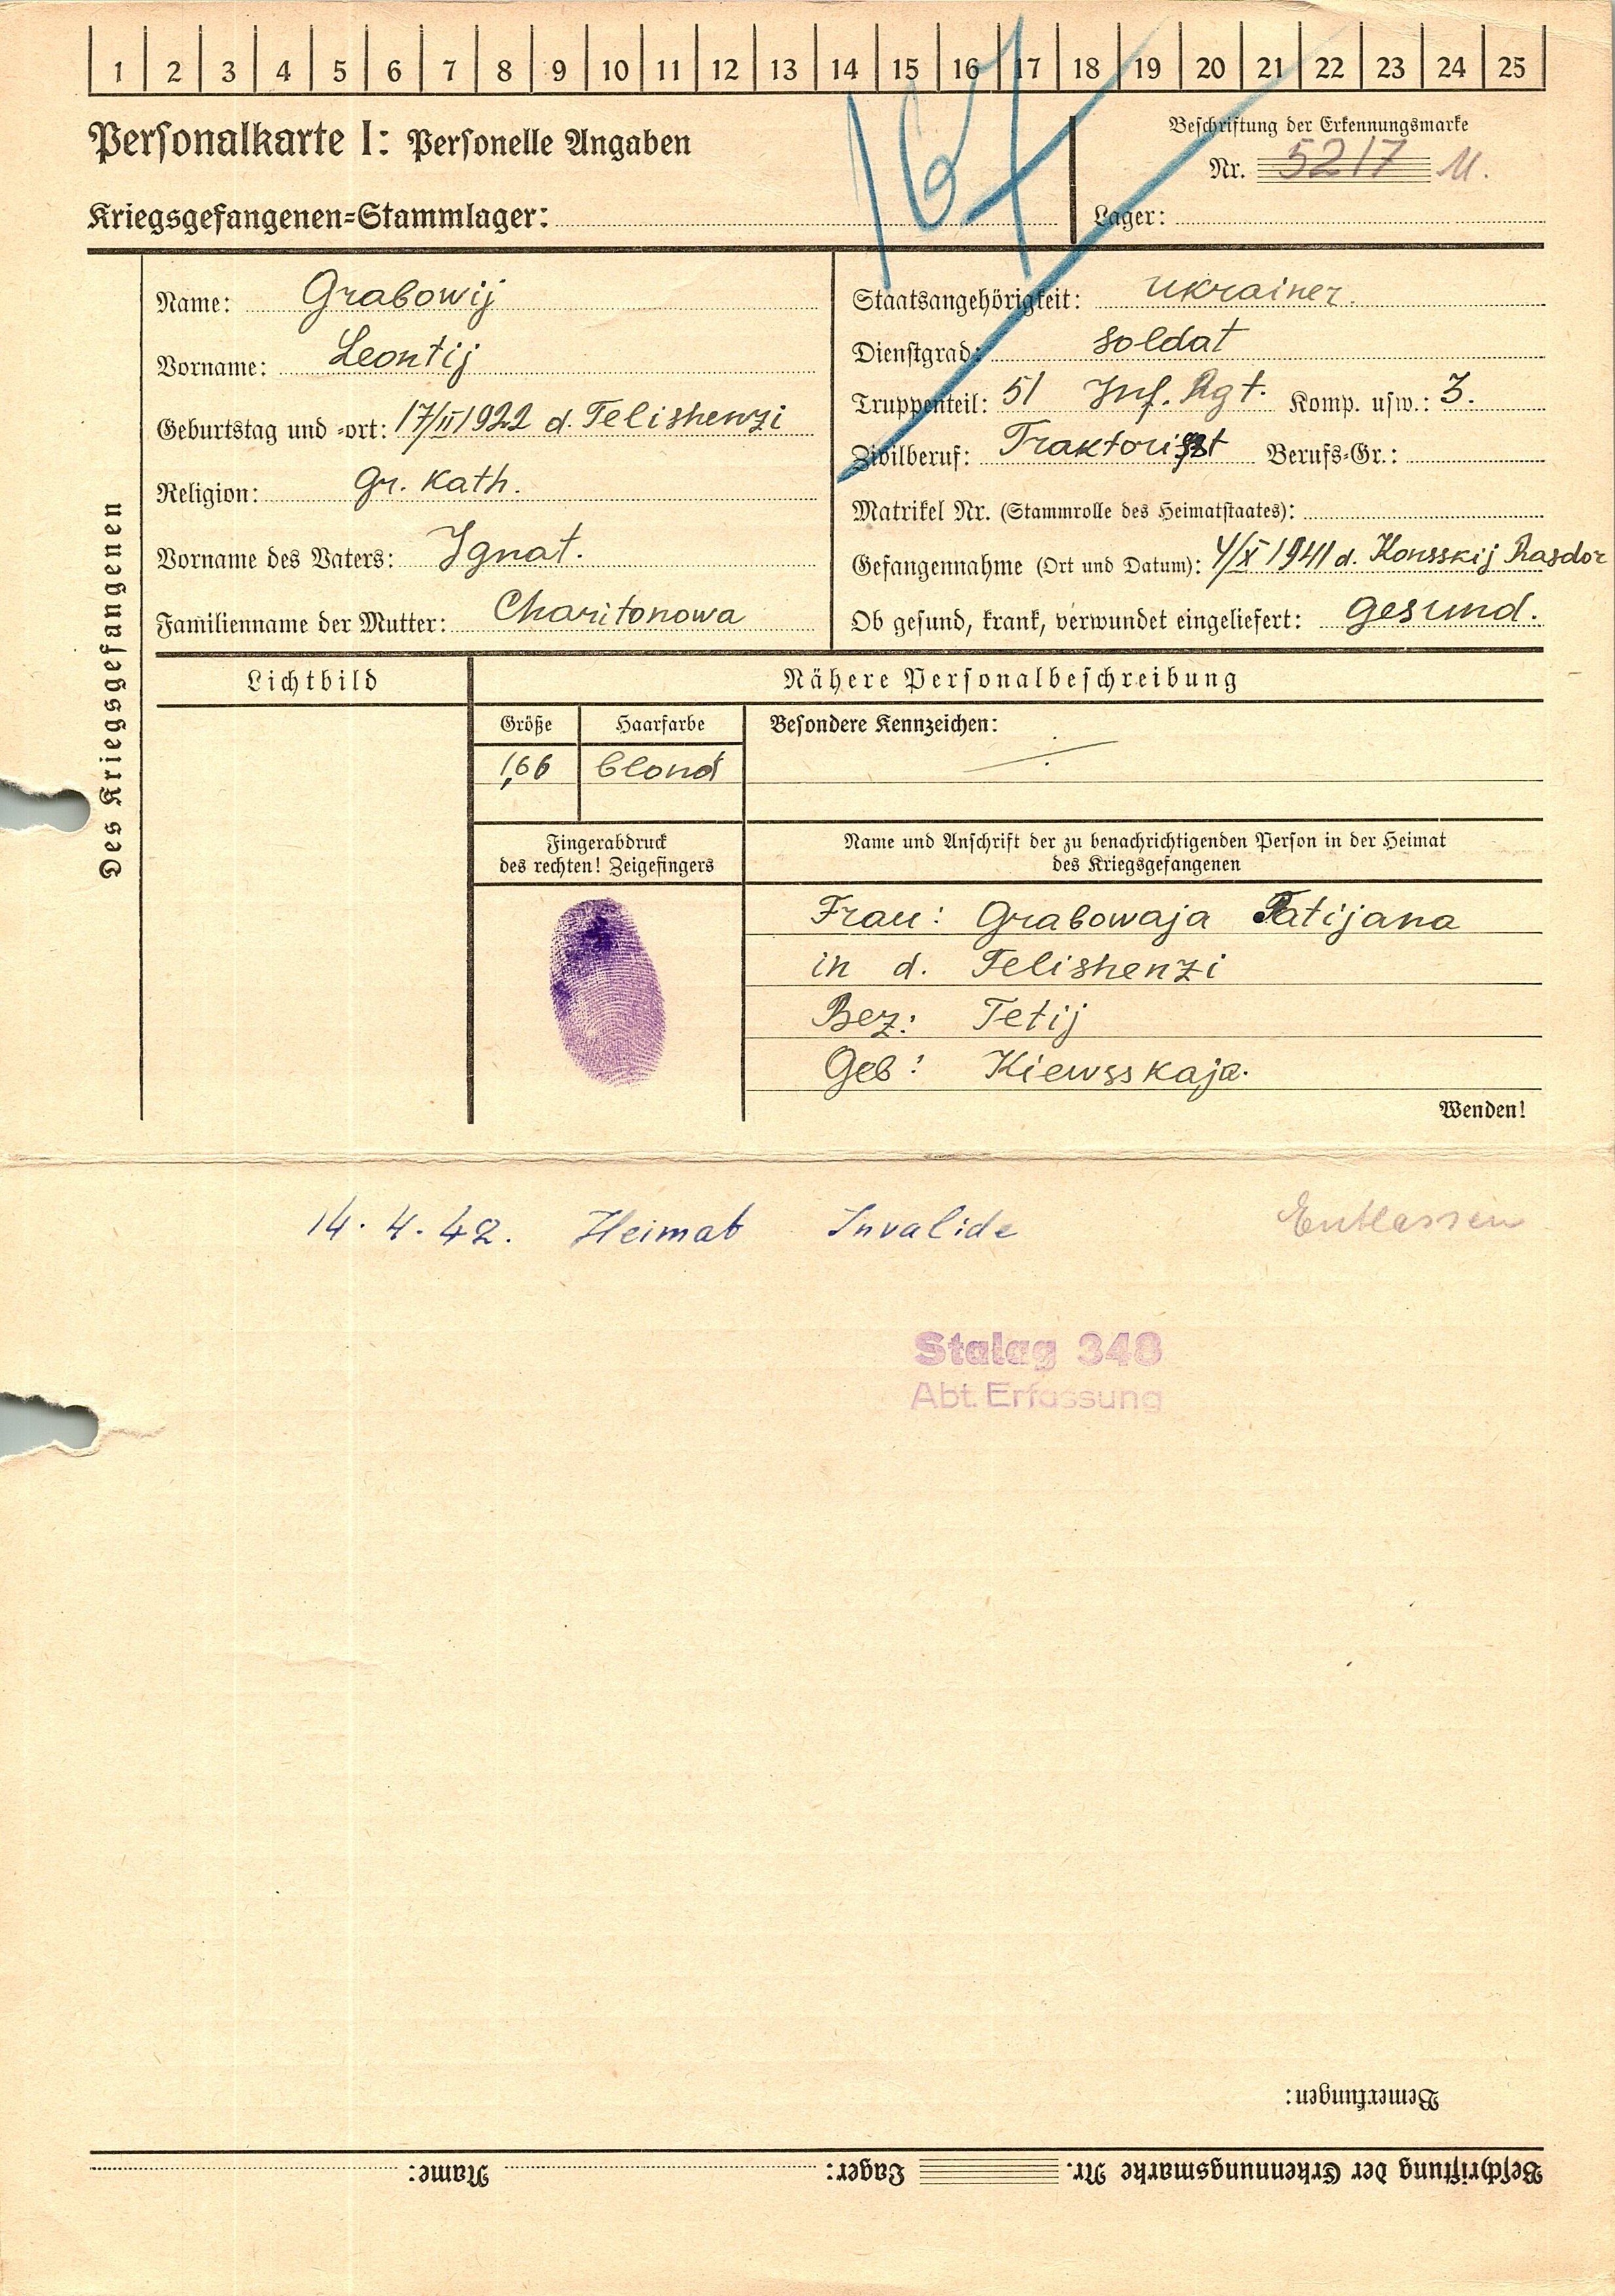 1 2 3 4 5 6 7 8 9 10 11 12 13 14 15 16 17 18 19 20 21 22 23 24 25
164
Personalkarte I: Personelle Angaben
Beschriftung der Erkennungsmarke
Nr. 5217
Kriegsgefangenen=Stammlager:
Lager:
Des Kriegsgefangenen
Name: Grabowij
Vorname: Leontij
Geburtstag und =ort: 17/II 1922 d. Telishenzi
Religion: gr. kath.
Vorname des Vaters: Ignat.
Familienname der Mutter: Charitonowa
Staatsangehörigkeit: Ukrainer.
Dienstgrad: Soldat
Truppenteil: 51 Inf. Rgt. Komp. usw.: 3.
Zivilberuf: Traktorist Berufs=Gr.:
Matrikel Nr. (Stammrolle des Heimatstaates):
Gefangennahme (Ort und Datum): 4/X 1941 d. Konsskij Rasdor
Ob gesund, krank, verwundet eingeliefert: gesund.
Lichtbild
Nähere Personalbeschreibung
Größe Haarfarbe Besondere Kennzeichen:
1,66 blond
Fingerabdruck
des rechten! Zeigefingers
Name und Anschrift der zu benachrichtigenden Person in der Heimat
des Kriegsgefangenen
Frau: Grabowaja Tatijana
in d. Telishenzi
Bez: Tetij
Geb: Kiewsskaja.
Wenden!
14. 4. 42. Heimat Invalide Entlassen
Stalag 348
Abt. Erfassung
Bemerkungen:
Beschriftung der Erkennungsmarke Nr. Lager: Name: